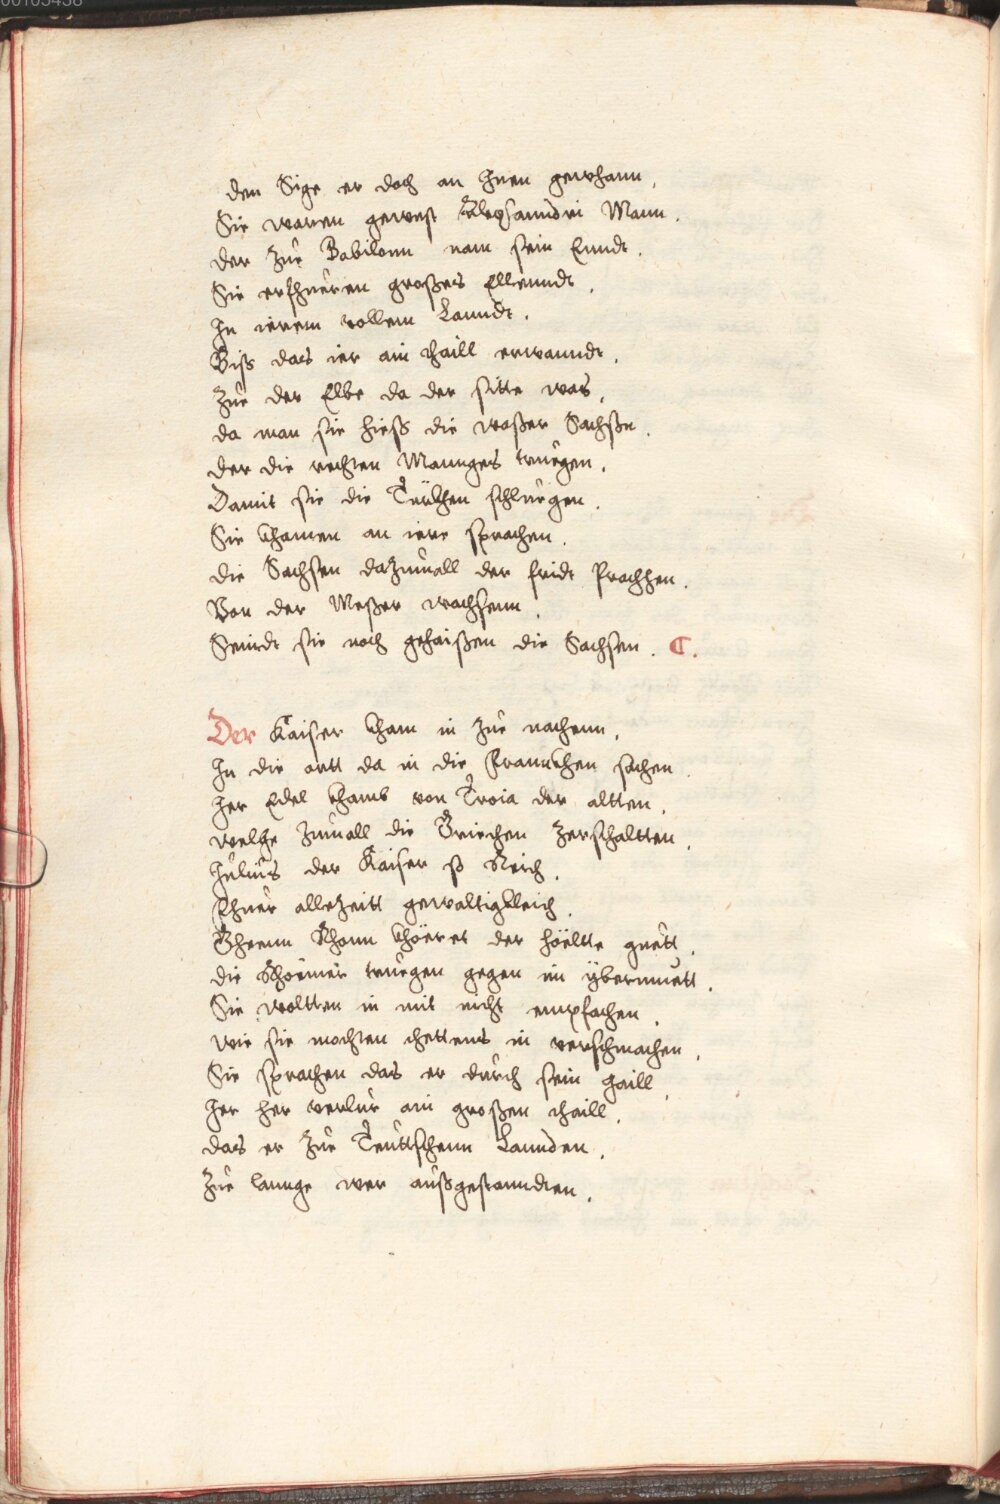 00105438
den Sige er doch an Inen gewhann,
Sie waren gewest Alexsanndri Mann.
der Zue Babilonn nam sein Ennde.
Sie erfhueren großes Ellennde,
In ierem vollem Lannde.
Biß das ier ain thaill erwannde,
Zue der Elbe da der sitte was,
da man sie hieß die waßer Sachßn.
der die rechten Mannges truegen,
Damit sie die schluegen.
Sie khamen an iere sprachen.
die Sachsen dazumall der fride Prachhen.
Von der Meßer wachsenn,
Seinde sie noch gehaißen die Sachsen. C.
Der Kaiser kham in Zue nachenn,
In die artt da in die Frannckhen sachen
Her Edel khamb von Troia der altten,
welche Zumall die Griechen Zerschaltten.
Julius der Kaiser so Reich,
Fhuer allezeitt gewaltigkleich.
Gheenn Rhom khöeret der höeltte guett,
die Rhoemer truegen gegen im übermuett.
Sie woltten in mit nicht empfachen,
wie sie mochten thettens in verschmachen,
Sie sprachen das er durch sein gaill,
Her her verlur ain großen thaill,
das er Zue Teuttschenn Lannden,
Zue lannge wer außgestanndten.